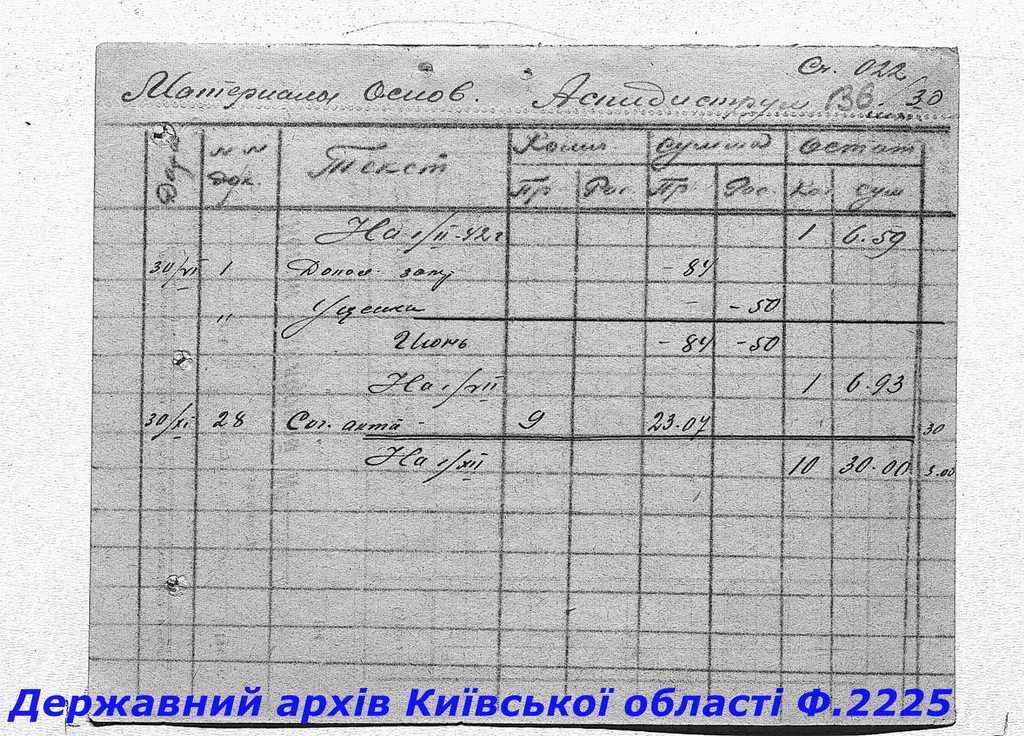 Сч. 022
Материалы Основ. Аспидиструм 136./30
Дата №№ док. Текст Колич. Суммад Остат
Пр Рас. Пр Рас. Кол сум
На 1/II-42 г 1 6.59
30/VI 1 Допол. - 84
" Уценка - -50
Июнь -84 -50
На 1/VII 1 6.93
30/XI 28 Сог. акта - 9 23.07 30
На 1/XII 10 30.00 3.00
Державний архів Київської області Ф.2225